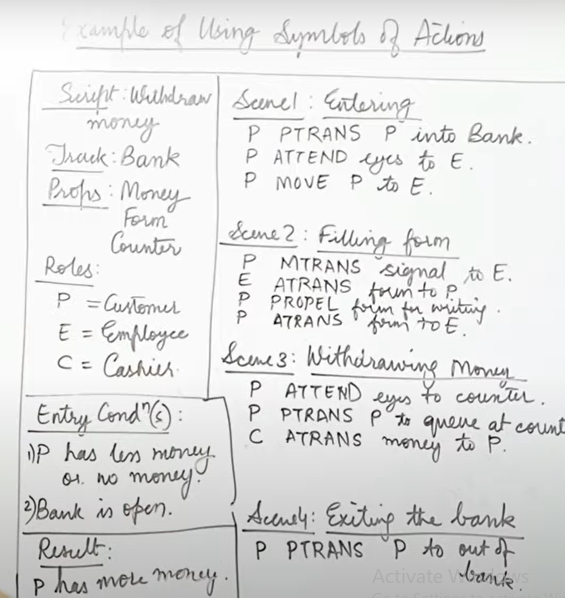 Example of Using Symbols of Actions
Script: Withdraw
money
Track: Bank
Props: Money
Form
Counter
Roles:
P = Customer
E = Employee
C = Cashier.
Entry Condn(s):
1) P has less money
or no money.
2) Bank is open.
Result:
P has more money.
Scene1: Entering
P PTRANS P into Bank.
P ATTEND eyes to E.
P MOVE P to E.
Scene2: Filling form
P MTRANS signal to E.
E ATRANS form to P.
P PROPEL form for writing.
P ATRANS form to E.
Scene3: Withdrawing Money
P ATTEND eyes to counter.
P PTRANS P to queue at count
C ATRANS money to P.
Scene4: Exiting the bank
P PTRANS P to out of
bank.
Activate Windows